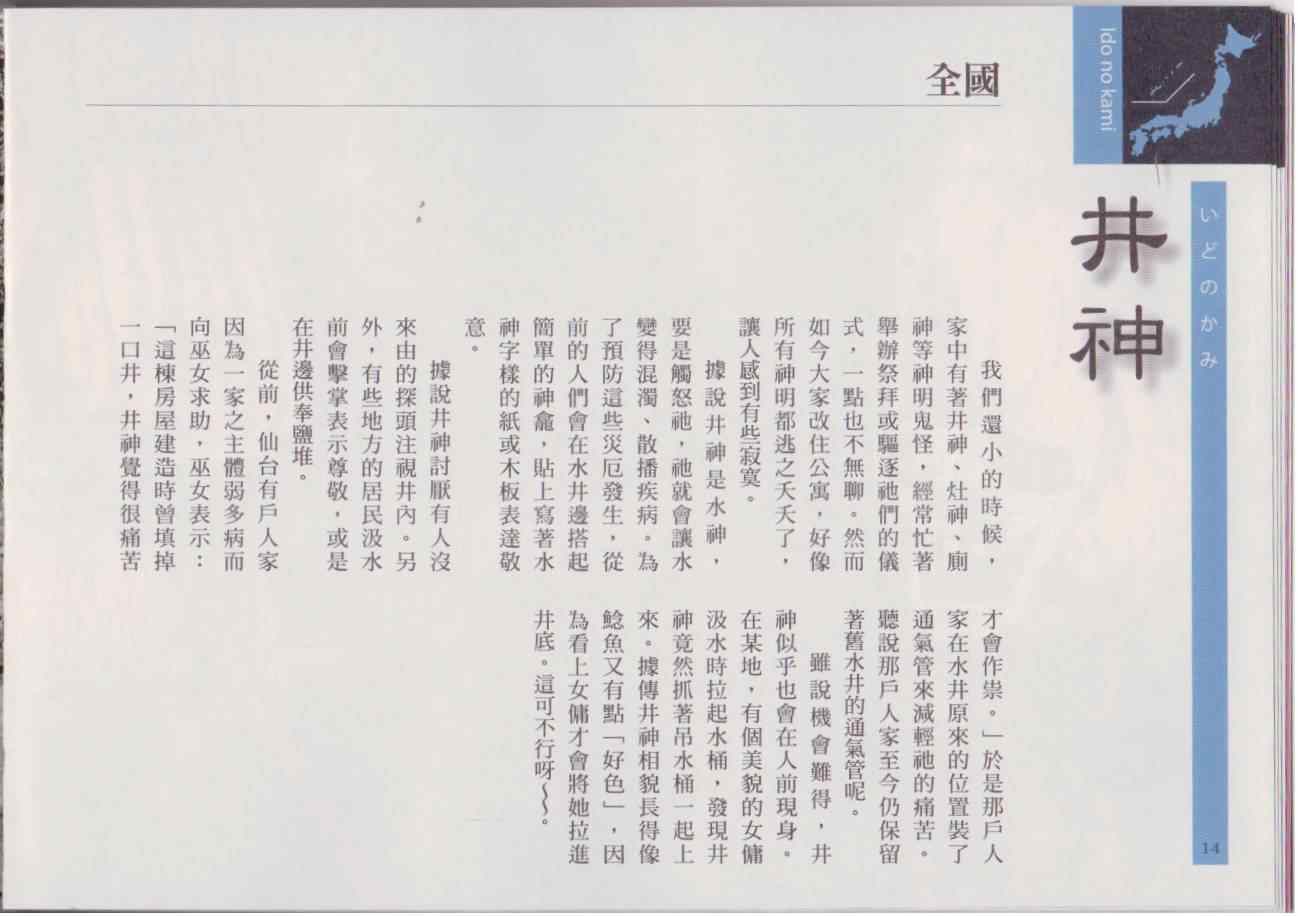 Ido no kami
いどのかみ
井神
全國
我們還小的時候，
家中有著井神、灶神、廁
神等神明鬼怪，經常忙著
舉辦祭拜或驅逐祂們的儀
式，一點也不無聊。然而
如今大家改住公寓，好像
所有神明都逃之夭夭了，
讓人感到有些寂寞。
據說井神是水神，
要是觸怒祂，祂就會讓水
變得混濁、散播疾病。為
了預防這些災厄發生，從
前的人們會在水井邊搭起
簡單的神龕，貼上寫著水
神字樣的紙或木板表達敬
意。
據說井神討厭有人沒
來由的探頭注視井內。另
外，有些地方的居民汲水
前會擊掌表示尊敬，或是
在井邊供奉鹽堆。
從前，仙台有戶人家
因為一家之主體弱多病而
向巫女求助，巫女表示：
「這棟房屋建造時曾填掉
一口井，井神覺得很痛苦
才會作祟。」於是那戶人
家在水井原來的位置裝了
通氣管來減輕祂的痛苦。
聽說那戶人家至今仍保留
著舊水井的通氣管呢。
雖說機會難得，井
神似乎也會在人前現身。
在某地，有個美貌的女傭
汲水時拉起水桶，發現井
神竟然抓著吊水桶一起上
來。據傳井神相貌長得像
鯰魚又有點「好色」，因
為看上女傭才會將她拉進
井底。這可不行呀～～。
14